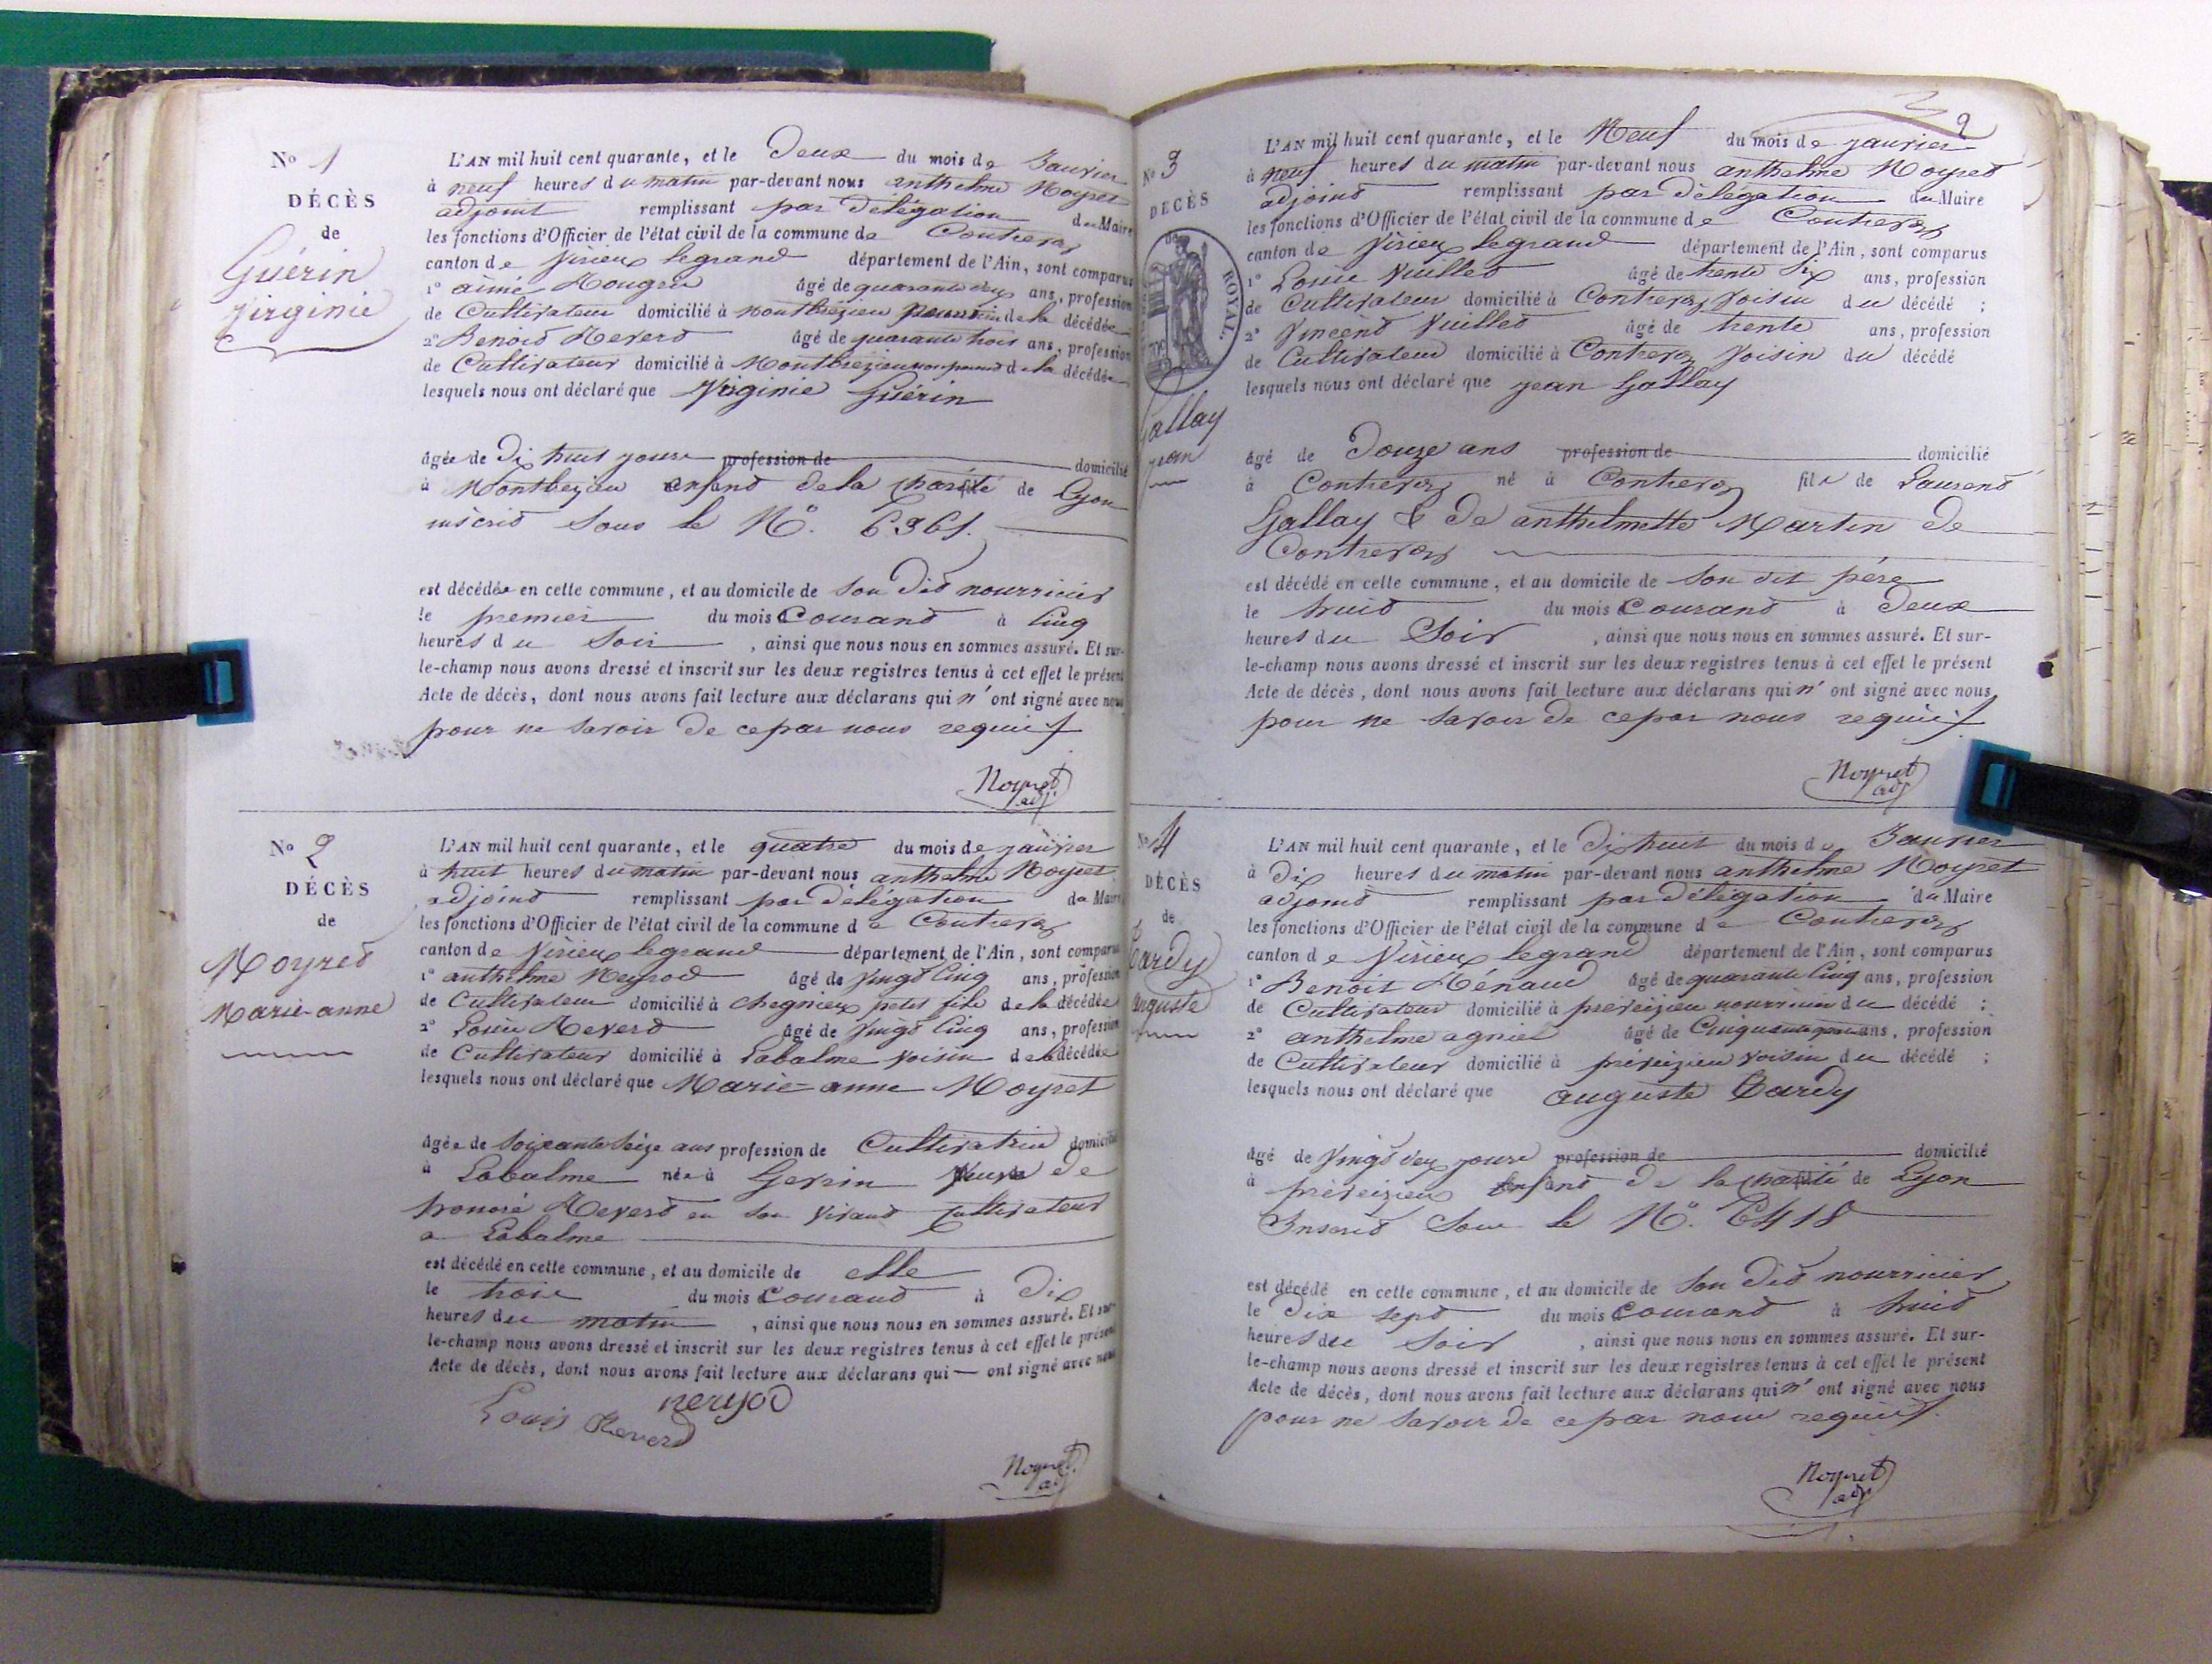 No 1
DÉCÈS
de
Guérin
Virginie
L'AN mil huit cent quarante, et le Deux du mois de Janvier
à neuf heures du matin par-devant nous anthelme Moyret
adjoint remplissant par Délégation du Maire
les fonctions d'Officier de l'état civil de la commune de Contrevoz
canton de Virieux legrand département de l'Ain, sont comparus
1° aimé Mougeu âgé de quarante deux ans, profession
de Cultivateur domicilié à Montbrezieu de la décédée
2° Benoid Reverd âgé de quarante trois ans, profession
de Cultivateur domicilié à Montbrezieu non parend de la décédée
lesquels nous ont déclaré que Virginie Guérin
âgée de Dix huit jours profession de domicilié
à Montbezieu enfand de la charité de Lyon
inscrid sous le N°. 6361.
est décédée en cette commune, et au domicile de son Did nourricier
le premier du mois Courand à Cinq
heures du Soir, ainsi que nous nous en sommes assuré. Et sur-
le-champ nous avons dressé et inscrit sur les deux registres tenus à cet effet le présent
Acte de décès, dont nous avons fait lecture aux déclarans qui n'ont signé avec nous
pour ne savoir de ce par nous requis
Moyret
adj
No 2
DÉCÈS
de
Moyred
Marie-anne
L'AN mil huit cent quarante, et le quatre du mois de janvier
à huit heures du matin par-devant nous anthelme Moyret
adjoind remplissant par Délégation du Maire
les fonctions d'Officier de l'état civil de la commune de Contrevoz
canton de Virieux legrand département de l'Ain, sont comparus
1° anthelme Neyrod âgé de Vingd Cinq ans, profession
de Cultivateur domicilié à Chegnieux petit fils de la décédée
2° Louis Reverd âgé de Vingd Cinq ans, profession
de Cultivateur domicilié à Labalme voisin de la décédée
lesquels nous ont déclaré que Marie-anne Moyret
âgée de Soixante Seize ans profession de Cultivatrice domicilié
à Labalme née à Gevrin Veuve de
honoré Reverd en son vivand Cultivateur
a Labalme
est décédé en cette commune, et au domicile de elle
le trois du mois Courand à Dix
heures du matin, ainsi que nous nous en sommes assuré. Et sur-
le-champ nous avons dressé et inscrit sur les deux registres tenus à cet effet le présent
Acte de décès, dont nous avons fait lecture aux déclarans qui — ont signé avec nous
Louis Reverd
Moyret
adj
9
No 3
DÉCÈS
de
ROYAL.
Gallay
jean
L'AN mil huit cent quarante, et le Neuf du mois de janvier
à neuf heures du matin par-devant nous anthelme Moyred
adjoind remplissant par Délégation du Maire
les fonctions d'Officier de l'état civil de la commune de Contrevoz
canton de Virieux legrand département de l'Ain, sont comparus
1° Louis Vuilled âgé de trente Six ans, profession
de Cultivateur domicilié à Contrevoz Voisin du décédé ;
2° Vincend Vuilled âgé de trente ans, profession
de Cultivateur domicilié à Contrevoz Voisin du décédé
lesquels nous ont déclaré que jean Gallay
âgé de Douze ans profession de domicilié
à Contrevoz né à Contrevoz fils de Laurend
Gallay & de anthelmette Martin de
Contrevoz
est décédé en cette commune, et au domicile de son dit père
le huid du mois Courand à Deux
heures du Soir, ainsi que nous nous en sommes assuré. Et sur-
le-champ nous avons dressé et inscrit sur les deux registres tenus à cet effet le présent
Acte de décès, dont nous avons fait lecture aux déclarans qui n'ont signé avec nous
pour ne savoir de ce par nous requis
Moyret
adj
No 4
DÉCÈS
de
Bardy
auguste
L'AN mil huit cent quarante, et le Dix huit du mois de Janvier
à Dix heures du matin par-devant nous anthelme Moyret
adjoind remplissant par Délégation du Maire
les fonctions d'Officier de l'état civil de la commune de Contrevoz
canton de Virieux legrand département de l'Ain, sont comparus
1° Benoit Hénaud âgé de quarante Cinq ans, profession
de Cultivateur domicilié à preveizieu nourricier du décédé ;
2° anthelme agniel âgé de ans, profession
de Cultivateur domicilié à préveizieu voisin du décédé ;
lesquels nous ont déclaré que auguste Bardy
âgé de Vingd deux jours profession de domicilié
à prèveizieu Enfand de la charité de Lyon
Inscrid Sous le N°. 6418
est décédé en cette commune, et au domicile de son Did nourricier
le Dix sepd du mois Courand à huid
heures du Soir, ainsi que nous nous en sommes assuré. Et sur-
le-champ nous avons dressé et inscrit sur les deux registres tenus à cet effet le présent
Acte de décès, dont nous avons fait lecture aux déclarans qui n'ont signé avec nous
pour ne savoir de ce par nous requis
Moyret
adj